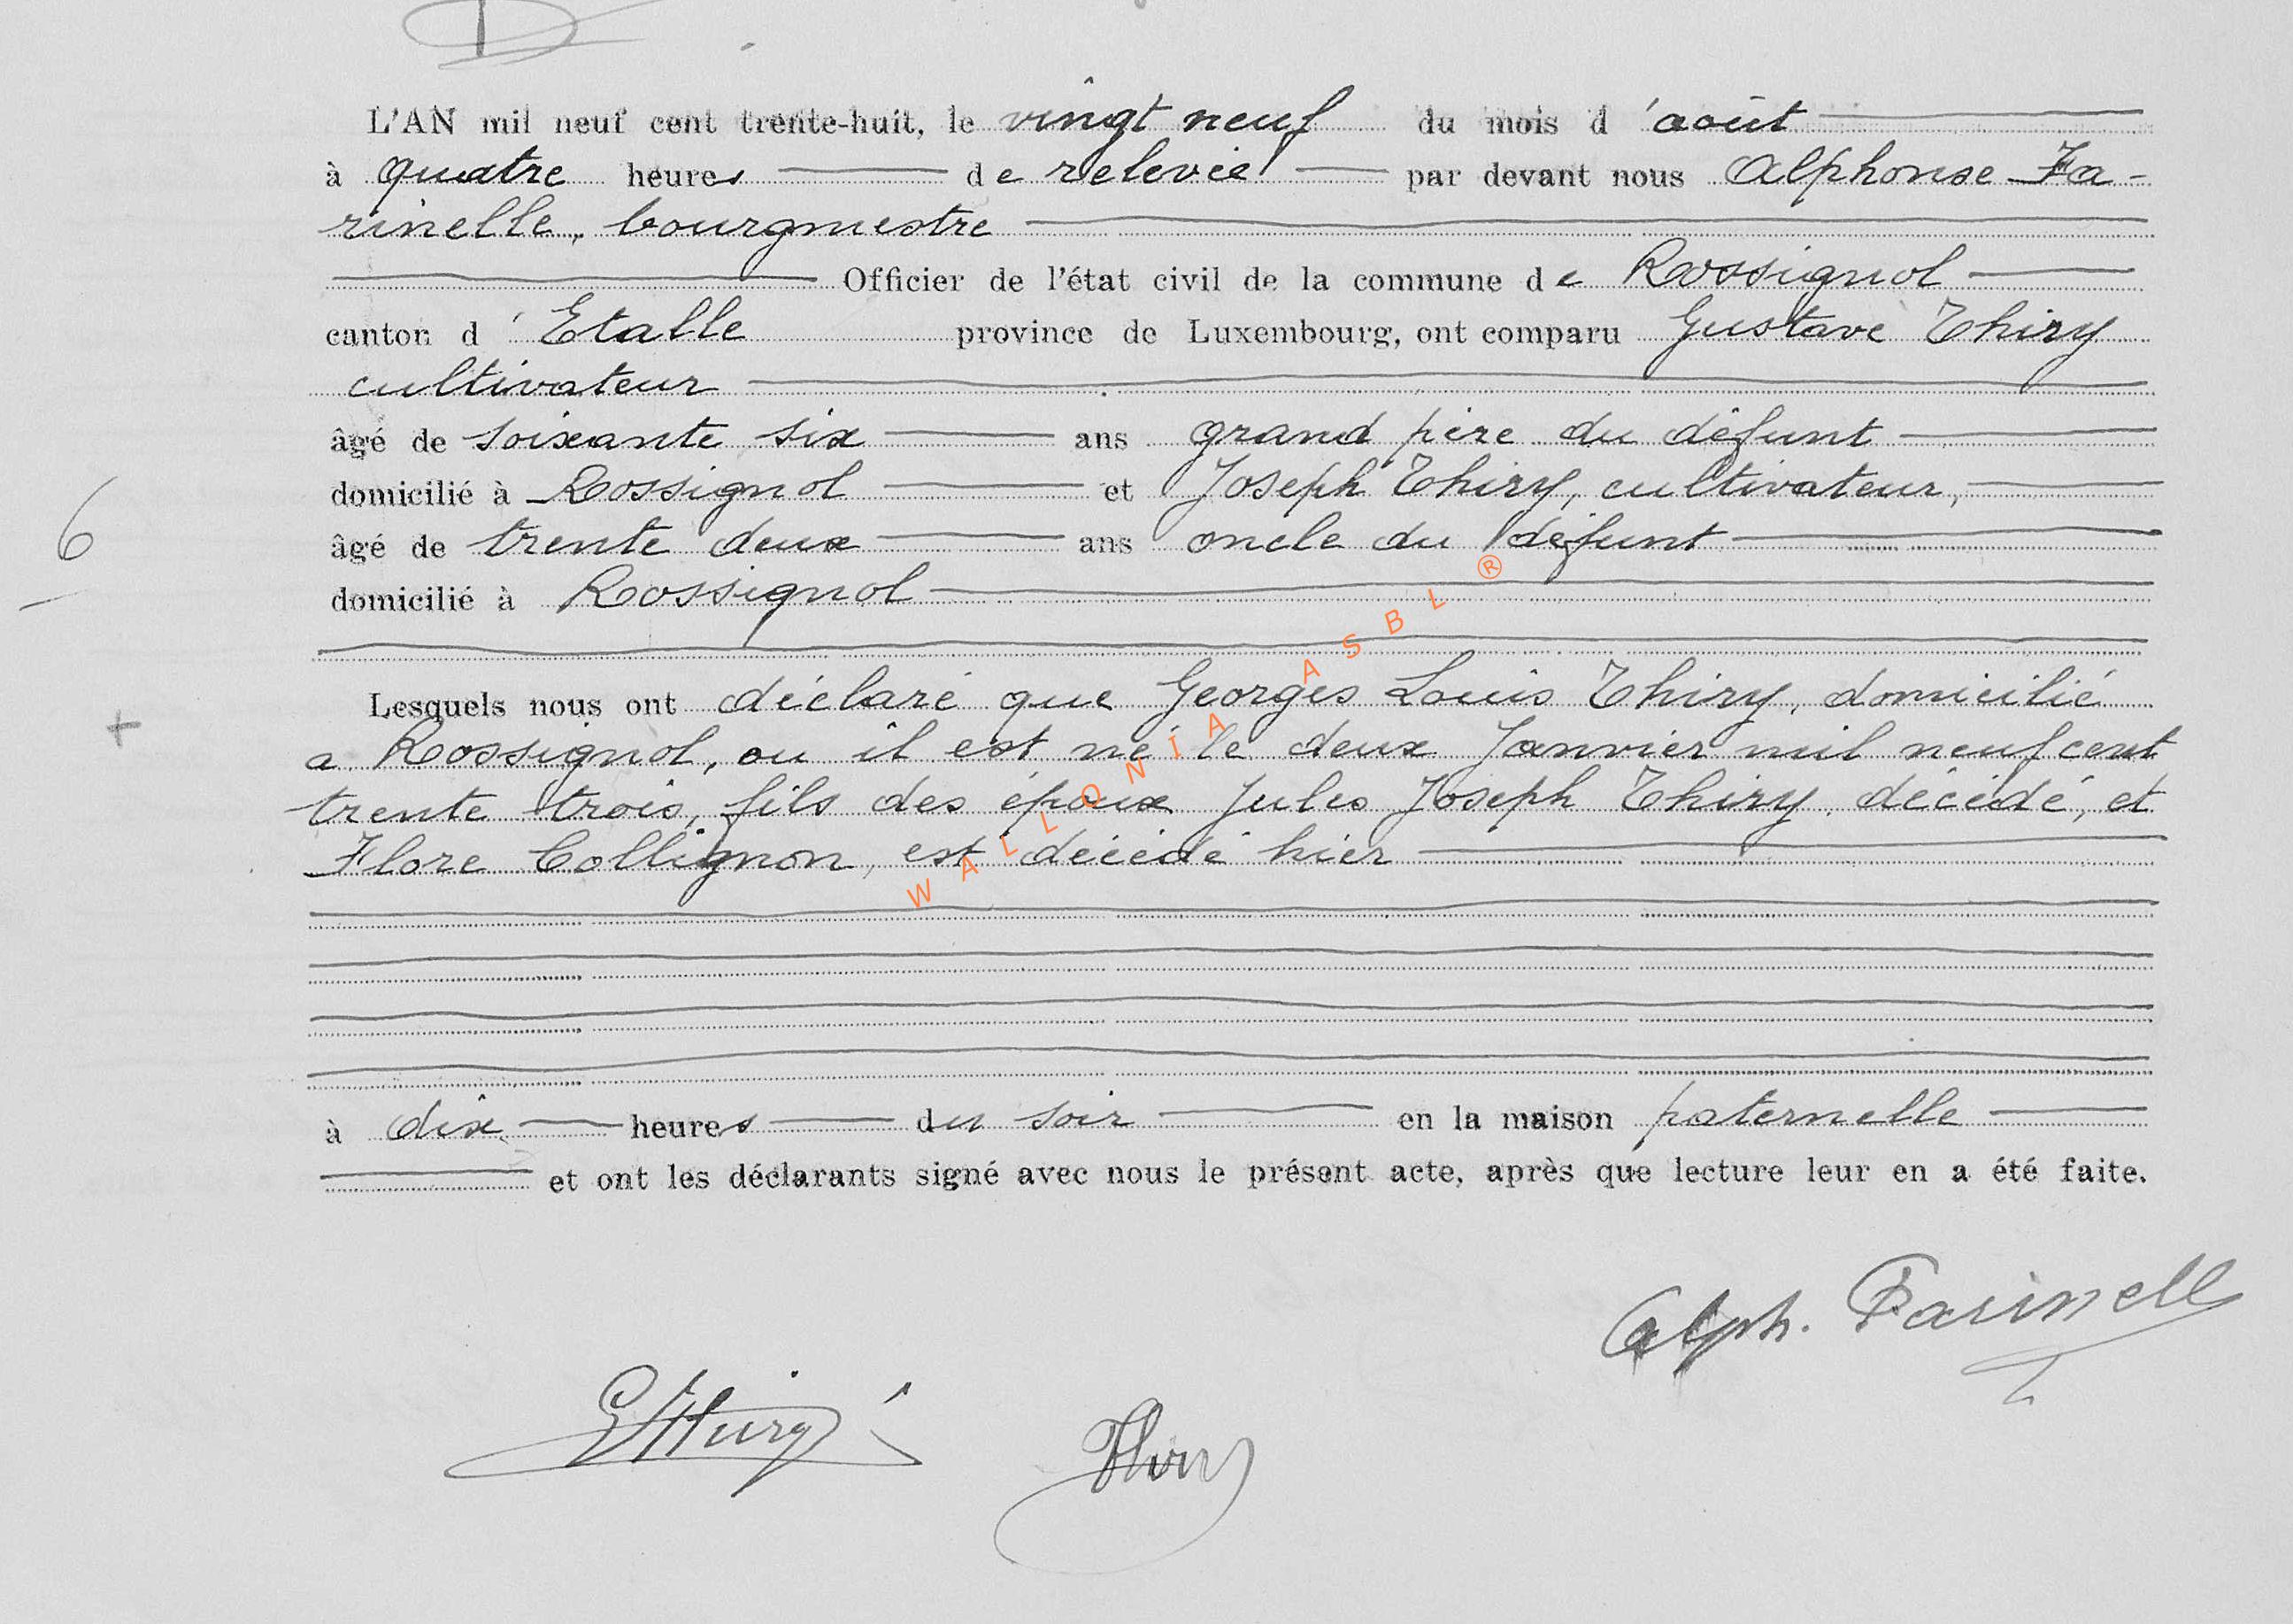 L'AN mil neuf cent trente-huit, le vingt neuf du mois d'août
à quatre heures de relevée par devant nous Alphonse Fa-
rinelle, bourgmestre
Officier de l'état civil de la commune de Rossignol
canton d'Etalle province de Luxembourg, ont comparu Gustave Thiry
cultivateur
âgé de soixante six ans grand père du défunt
domicilié à Rossignol et Joseph Thiry, cultivateur,
6
âgé de trente deux ans oncle du défunt
domicilié à Rossignol
Lesquels nous ont déclaré que Georges Louis Thiry, domicilié
+
a Rossignol, ou il est né le deux Janvier mil neuf cent
trente trois, fils des époux Jules Joseph Thiry, décédé, et
Flore Collignon, est décédé hier
WALLONIA ASBL ®
à dix heures du soir en la maison paternelle
et ont les déclarants signé avec nous le présent acte, après que lecture leur en a été faite.
Alph. Farinelle
GThiry
Thiry